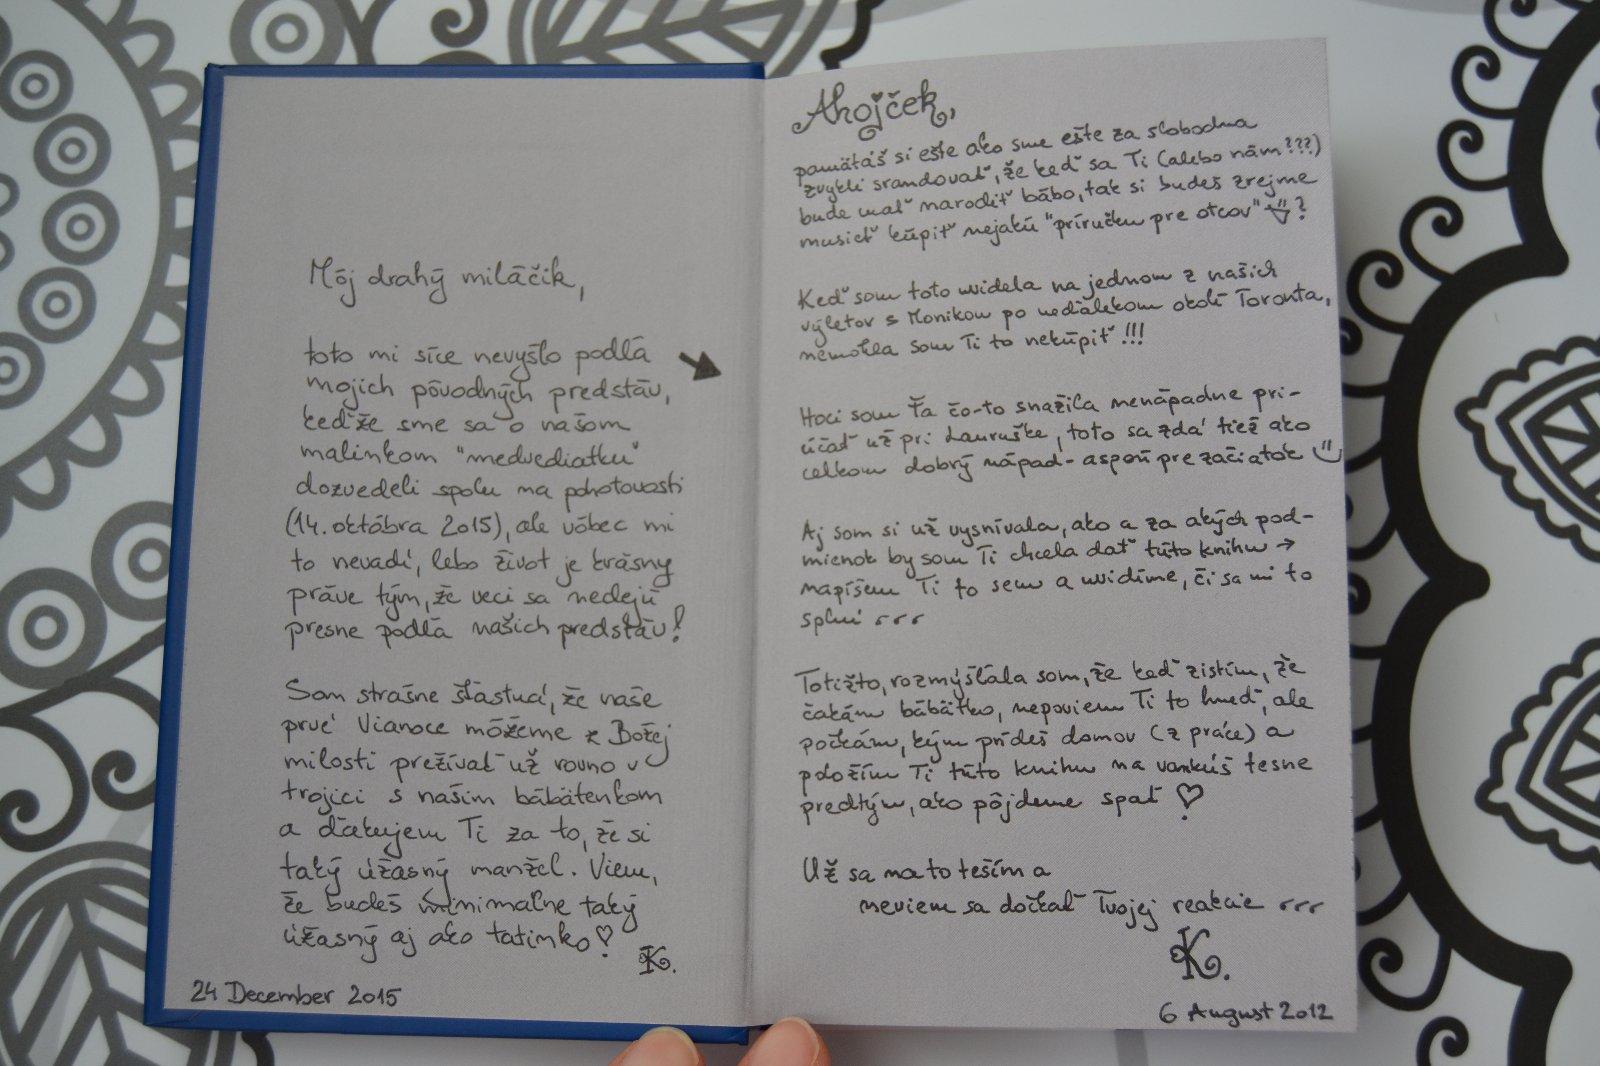 Môj drahý miláčik,
toto mi síce nevyšlo podľa
mojich pôvodných predstáv,
keďže sme sa o našom
malinkom "medvediatku"
dozvedeli spolu na pohotovosti
(14. októbra 2015), ale vôbec mi
to nevadí, lebo život je krásny
práve tým, že veci sa nedejú
presne podľa našich predstáv!
Som strašne šťastná, že naše
prvé Vianoce môžeme z Božej
milosti prežívať už rovno v
trojici s našim bábätenkom
a ďakujem Ti za to, že si
taký úžasný manžel. Viem,
že budeš minimálne taký
úžasný aj ako tatinko♡
K.
24 December 2015
Ahojček,
pamätáš si ešte ako sme ešte za slobodna
zvykli srandovať, že keď sa Ti (alebo nám???)
bude mať narodiť bábo, tak si budeš zrejme
musieť kúpiť nejakú "príručku pre otcov" ?
Keď som toto uvidela na jednom z našich
výletov s Monikou po neďalekom okolí Toronta,
nemohla som Ti to nekúpiť!!!
Hoci som Ťa čo-to snažila nenápadne pri-
účať už pri Lauruške, toto sa zdá tiež ako
celkom dobrý nápad - aspoň pre začiatok :)
Aj som si už vysnívala, ako a za akých pod-
mienok by som Ti chcela dať túto knihu →
napíšem Ti to sem a uvidíme, či sa mi to
splní ...
Totižto, rozmýšľala som, že keď zistím, že
čakám bábätko, nepoviem Ti to hneď, ale
počkám, kým prídeš domov (z práce) a
položím Ti túto knihu na vankúš tesne
predtým, ako pôjdeme spať ♡
Už sa na to teším a
neviem sa dočkať Tvojej reakcie ...
K.
6 August 2012